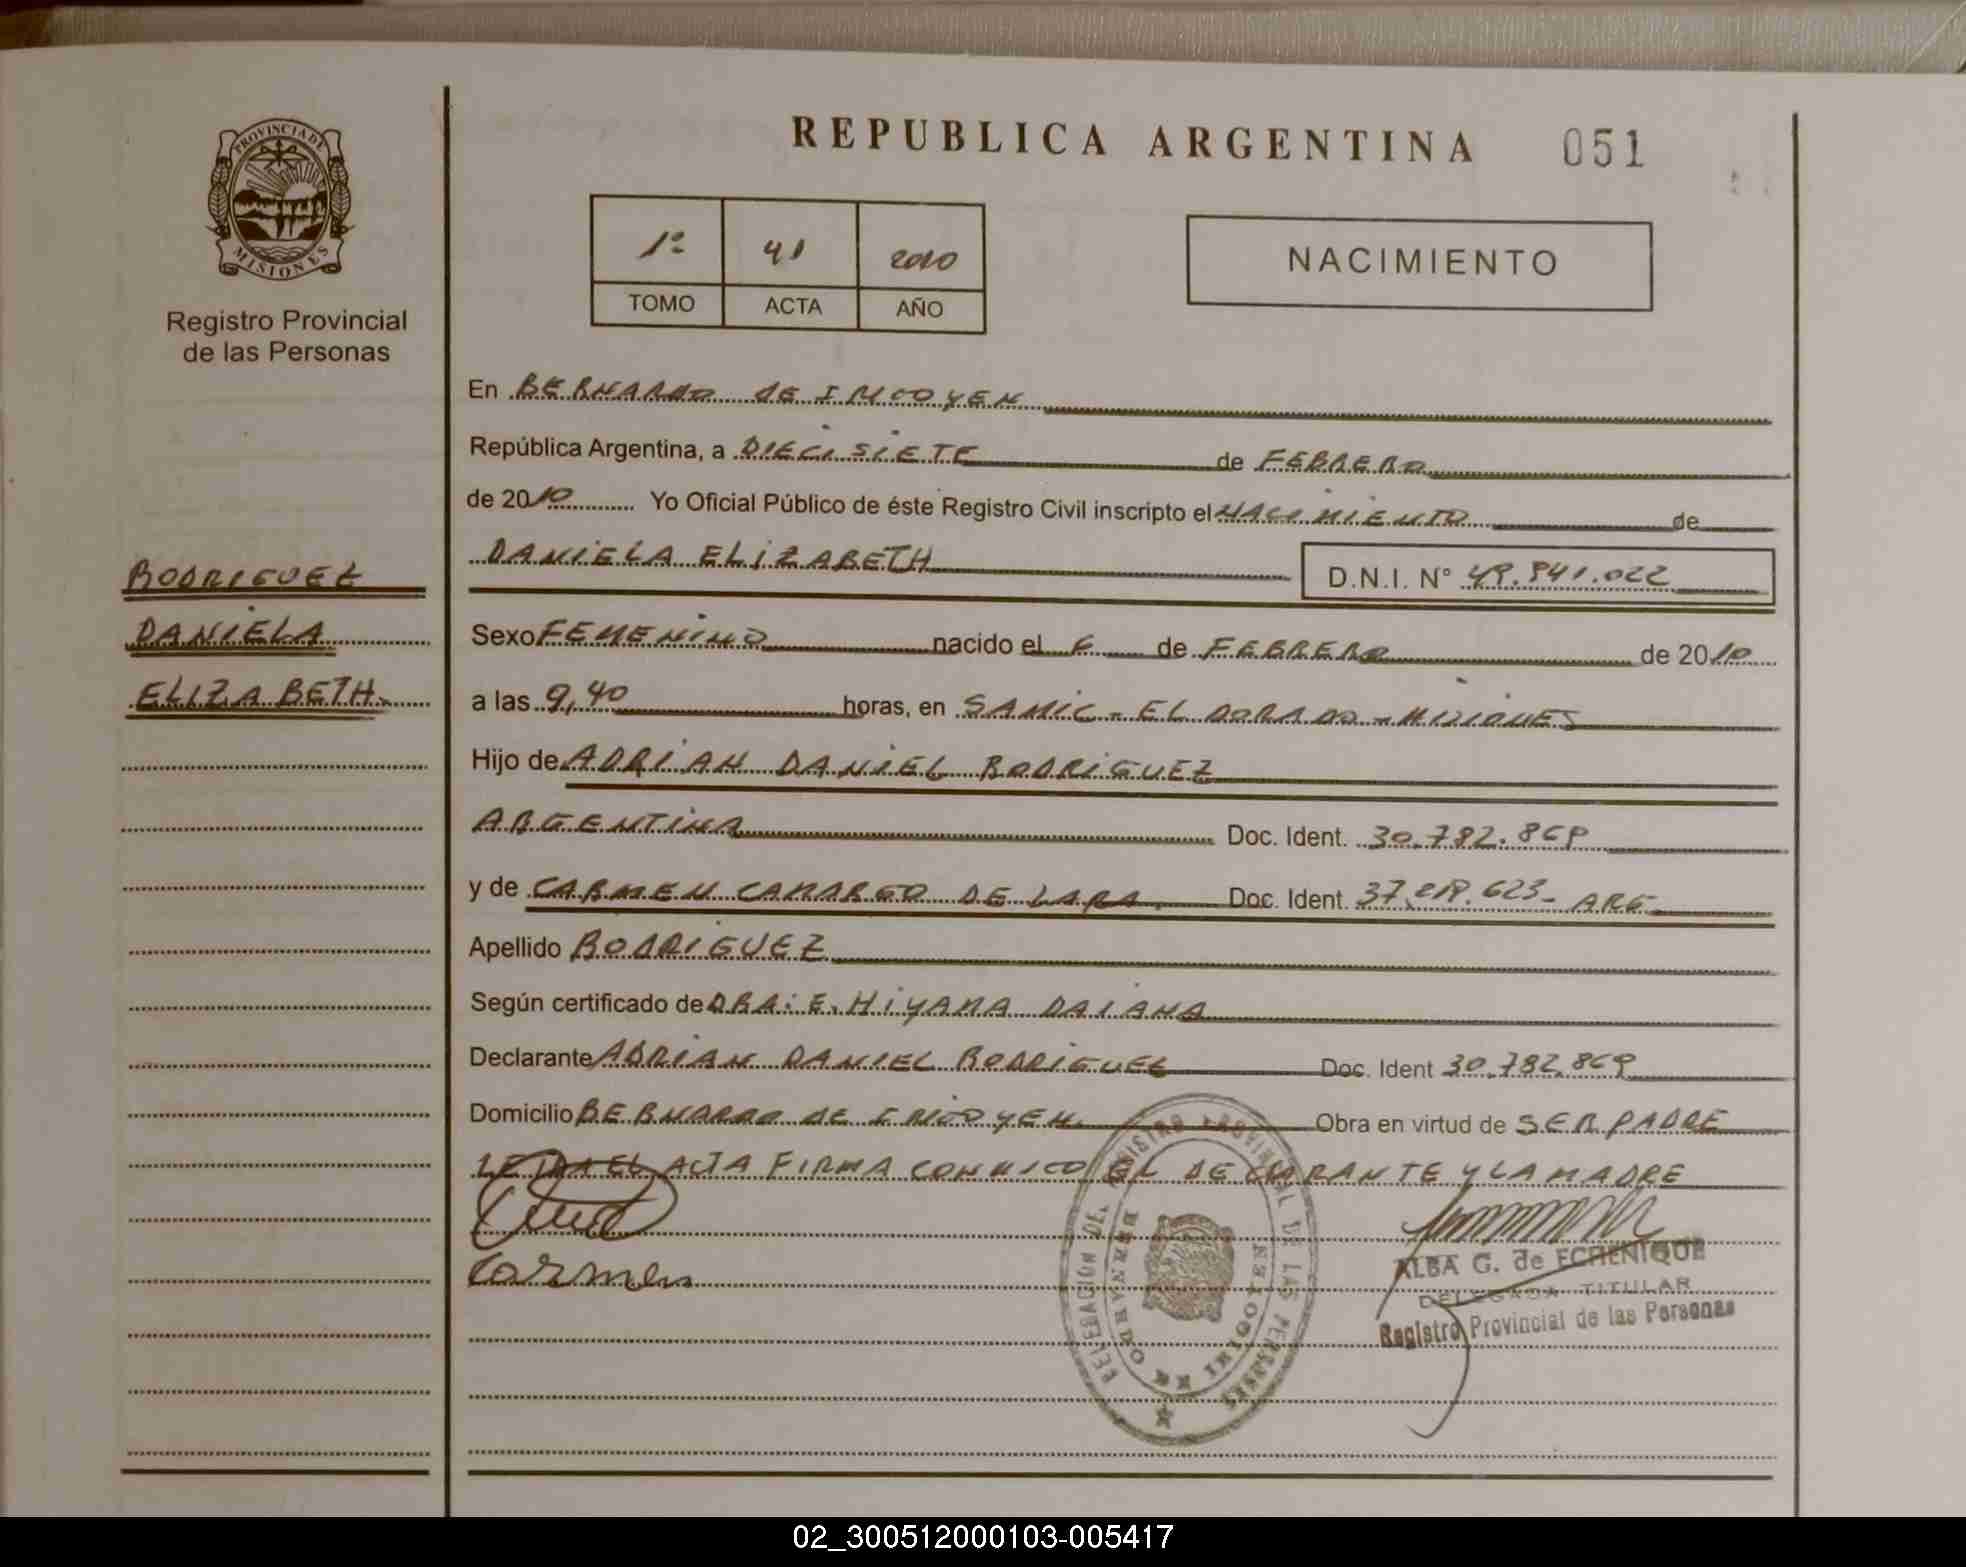 REPUBLICA ARGENTINA 051
PROVINCIA DE
MISIONES
Registro Provincial
de las Personas
1º 41 2010
TOMO ACTA AÑO
NACIMIENTO
En BERNARDO DE IRIGOYEN
República Argentina, a DIECISIETE de FEBRERO
de 2010 Yo Oficial Público de éste Registro Civil inscripto el NACIMIENTO de
DANIELA ELIZABETH D.N.I. Nº 49.941.022
RODRIGUEZ
DANIELA
ELIZABETH.
Sexo FEMENINO nacido el 6 de FEBRERO de 2010
a las 9,40 horas, en SAMIC - EL DORADO - MISIONES
Hijo de ADRIAN DANIEL RODRIGUEZ
ARGENTINA Doc. Ident. 30.782.869
y de CARMEN CAMARGO DE LARA. Doc. Ident. 37.219.623- ARG-
Apellido RODRIGUEZ
Según certificado de DRA: E. HIYAMA DAIANA
Declarante ADRIAN DANIEL RODRIGUEZ Doc. Ident 30.782.869
Domicilio BERNARDO DE IRIGOYEN. Obra en virtud de SER PADRE
LEIDA EL ACTA FIRMA CONMIGO EL DECLARANTE Y LA MADRE
Carmen
DELEGACION DEL REGISTRO PROVINCIAL DE LAS PERSONAS
BERNARDO DE IRIGOYEN
ALBA G. de ECHENIQUE
DELEGADA TITULAR
Registro Provincial de las Personas
02_300512000103-005417